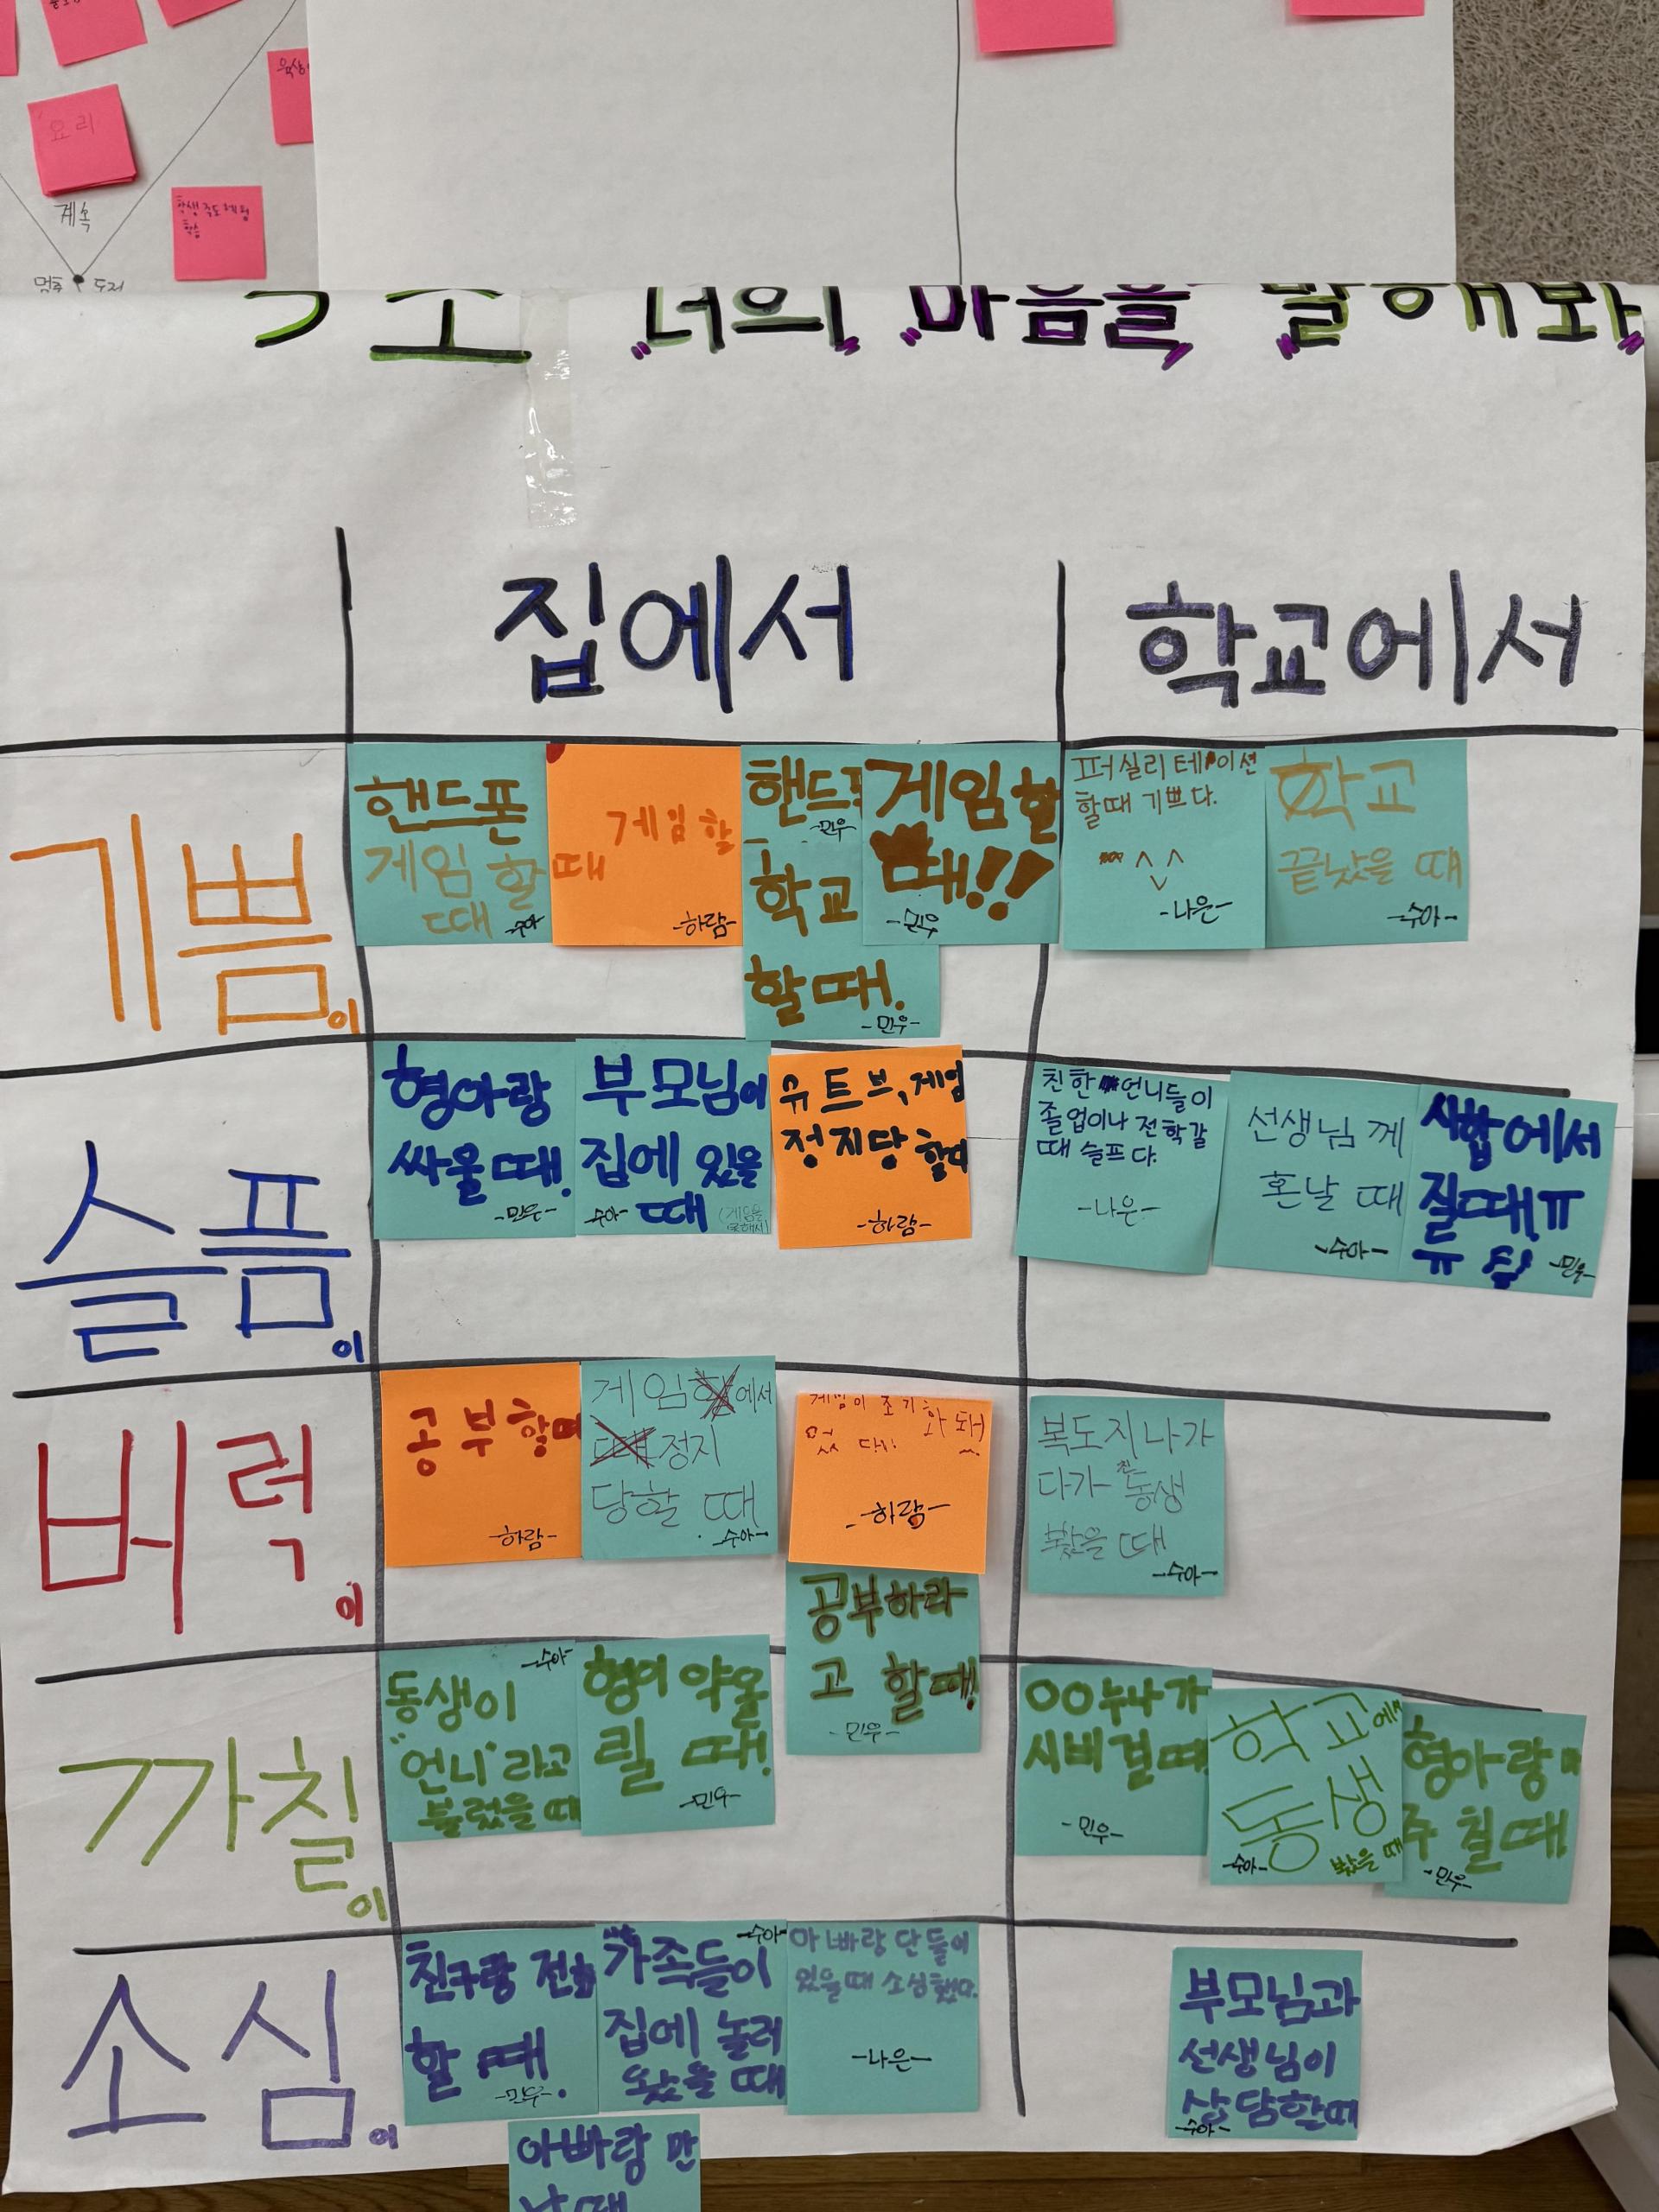 요리
계획
학생 주도 체험
학습
멈춤
도전
너의 마음을 말해봐
집에서
학교에서
기쁨이
핸드폰
게임 할
때
-수아-
게임 할
때
-하람-
핸드폰
-민우-
학교
할때.
-민우-
게임 할
때!!
-민우-
퍼실리테이션
할때 기쁘다.
-나은-
학교
끝났을 때
-수아-
슬픔이
형아랑
싸울 때.
-민우-
부모님이
집에 있을
때
(게임을
못해서)
-수아-
유트브, 게임
정지당 할때
-하람-
친한 언니들이
졸업이나 전학갈
때 슬프다.
-나은-
선생님께
혼날 때
-수아-
시합에서
질때ㅠ
ㅠ
-민우-
버럭이
공부 할때
-하람-
게임에서
정지
당할 때
-수아-
게임이 초기화 돼
었 다.
-하람-
공부하라
고 할때!
-민우-
복도 지나가
다가 친동생
봤을 때
-수아-
까칠이
-수아-
동생이
"언니"라고
불렀을 때
형이 약올
릴 때!
-민우-
○○누나가
시비 걸때
-민우-
학교에서
동생
봤을 때
-수아-
형아랑 마
주칠때
-민우-
소심이
친구랑 전화
할 때.
-민우-
-수아-
가족들이
집에 놀러
왔을 때
아빠랑 단둘이
있을때 소심했다.
-나은-
부모님과
선생님이
상담할때
-수아-
아빠랑 만
날때